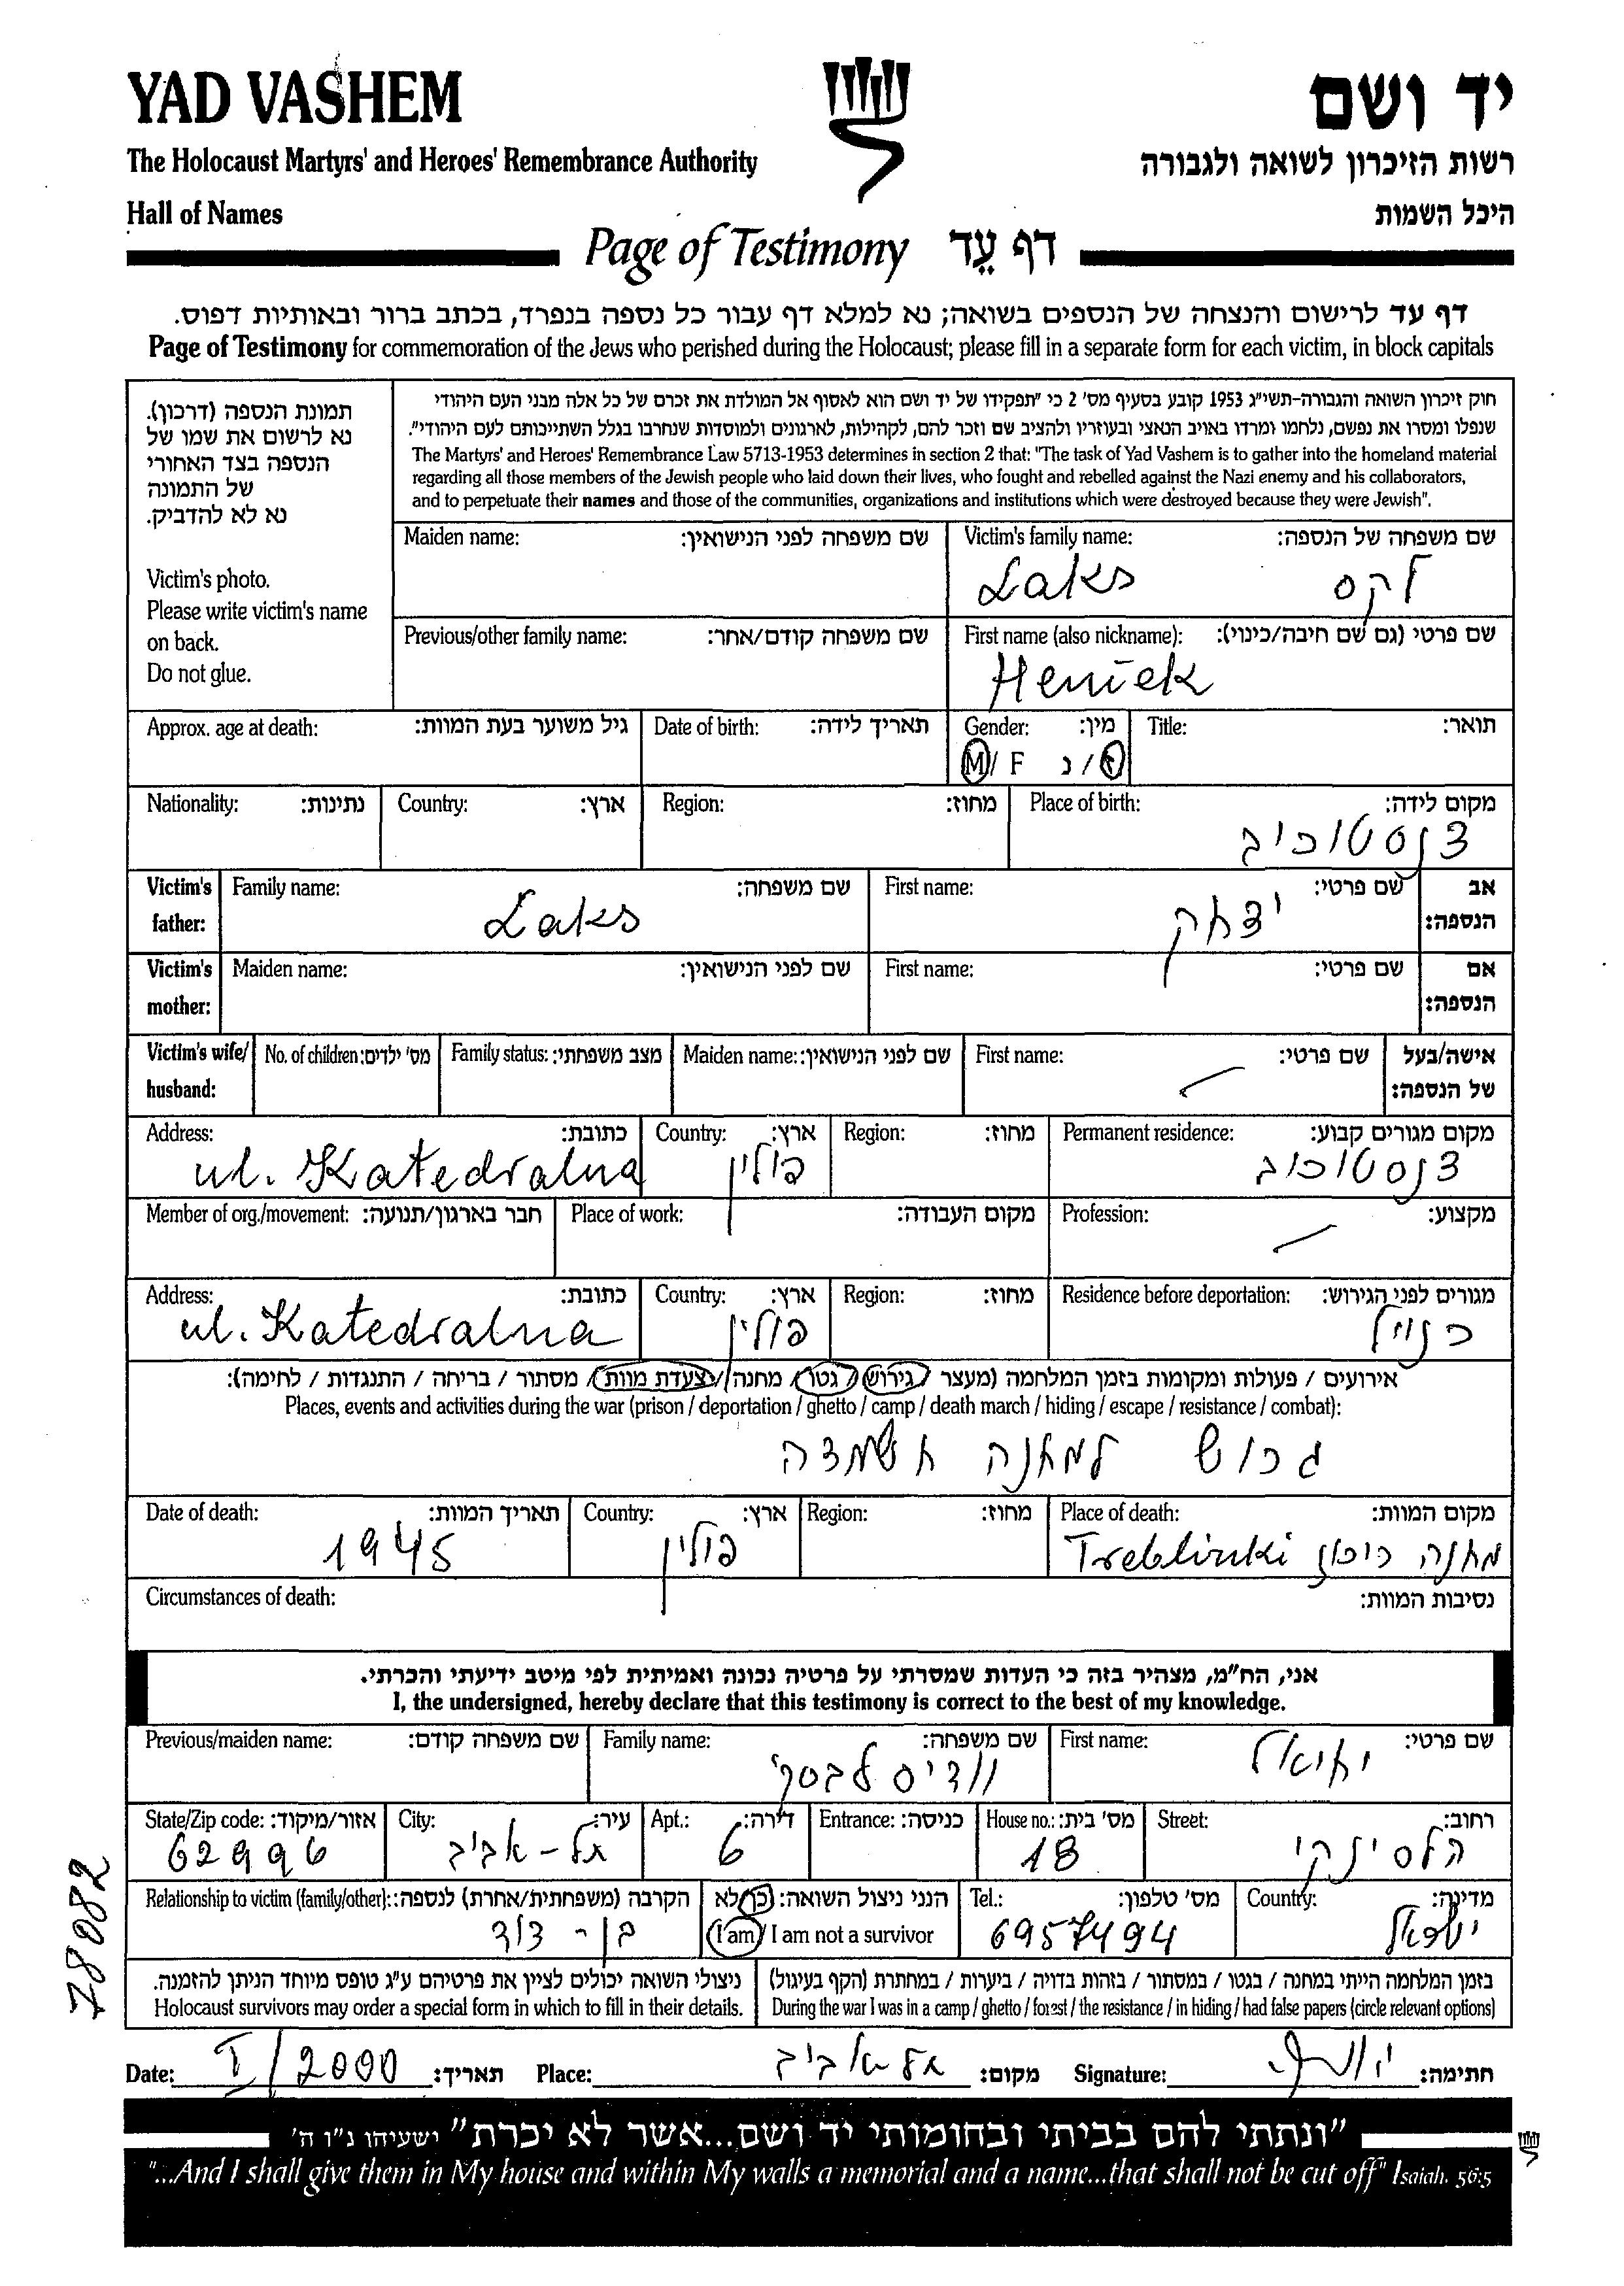 YAD VASHEM
יד ושם
The Holocaust Martyrs' and Heroes' Remembrance Authority
רשות הזיכרון לשואה ולגבורה
Hall of Names
היכל השמות
Page of Testimony דף עֵד
דף עד לרישום והנצחה של הנספים בשואה; נא למלא דף עבור כל נספה בנפרד, בכתב ברור ובאותיות דפוס.
Page of Testimony for commemoration of the Jews who perished during the Holocaust; please fill in a separate form for each victim, in block capitals
תמונת הנספה (דרכון).
נא לרשום את שמו של
הנספה בצד האחורי
של התמונה
נא לא להדביק.
Victim's photo.
Please write victim's name
on back.
Do not glue.
חוק זיכרון השואה והגבורה-תשי"ג 1953 קובע בסעיף מס' 2 כי "תפקידו של יד ושם הוא לאסוף אל המולדת את זכרם של כל אלה מבני העם היהודי
שנפלו ומסרו את נפשם, נלחמו ומרדו באויב הנאצי ובעוזריו ולהציב שם וזכר להם, לקהילות, לארגונים ולמוסדות שנחרבו בגלל השתייכותם לעם היהודי".
The Martyrs' and Heroes' Remembrance Law 5713-1953 determines in section 2 that: "The task of Yad Vashem is to gather into the homeland material
regarding all those members of the Jewish people who laid down their lives, who fought and rebelled against the Nazi enemy and his collaborators,
and to perpetuate their names and those of the communities, organizations and institutions which were destroyed because they were Jewish".
Maiden name: שם משפחה לפני הנישואין: Victim's family name: שם משפחה של הנספה:
Laks לקס
Previous/other family name: שם משפחה קודם/אחר: First name (also nickname): שם פרטי (גם שם חיבה/כינוי):
Heniek
Approx. age at death: גיל משוער בעת המוות: Date of birth: תאריך לידה: Gender: מין: Title: תואר:
M / F ז / נ
Nationality: נתינות: Country: ארץ: Region: מחוז: Place of birth: מקום לידה:
צנסטוכיב
Victim's father: Family name: שם משפחה: First name: שם פרטי: אב הנספה:
Laks יצחק
Victim's mother: Maiden name: שם לפני הנישואין: First name: שם פרטי: אם הנספה:
Victim's wife/ husband: No. of children: מס' ילדים: Family status: מצב משפחתי: Maiden name: שם לפני הנישואין: First name: שם פרטי: אישה/בעל של הנספה:
Address: כתובת: Country: ארץ: Region: מחוז: Permanent residence: מקום מגורים קבוע:
ul. Katedralna פולין צנסטוכוב
Member of org./movement: חבר בארגון/תנועה: Place of work: מקום העבודה: Profession: מקצוע:
Address: כתובת: Country: ארץ: Region: מחוז: Residence before deportation: מגורים לפני הגירוש:
ul. Katedralna פולין כנ"ל
אירועים / פעולות ומקומות בזמן המלחמה (מעצר / גירוש / גטו / מחנה / צעדת מוות / מסתור / בריחה / התנגדות / לחימה):
Places, events and activities during the war (prison / deportation / ghetto / camp / death march / hiding / escape / resistance / combat):
גרוש למחנה השמדה
Date of death: תאריך המוות: Country: ארץ: Region: מחוז: Place of death: מקום המוות:
1945 פולין מחנה ריכוז Treblinki
Circumstances of death: נסיבות המוות:
אני, הח"מ, מצהיר בזה כי העדות שמסרתי על פרטיה נכונה ואמיתית לפי מיטב ידיעתי והכרתי.
I, the undersigned, hereby declare that this testimony is correct to the best of my knowledge.
Previous/maiden name: שם משפחה קודם: Family name: שם משפחה: First name: שם פרטי:
יחיאל
State/Zip code: אזור/מיקוד: City: עיר: Apt.: דירה: Entrance: כניסה: House no.: מס' בית: Street: רחוב:
62996 תל-אביב 6 18 הלסינקי
Relationship to victim (family/other): הקרבה (משפחתית/אחרת) לנספה: הנני ניצול השואה: כן/לא Tel.: מס' טלפון: Country: מדינה:
בן - דוד I am / I am not a survivor 6957494 ישראל
ניצולי השואה יכולים לציין את פרטיהם ע"ג טופס מיוחד הניתן להזמנה. בזמן המלחמה הייתי במחנה / בגטו / במסתור / בזהות בדויה / ביערות / במחתרת (הקף בעיגול)
Holocaust survivors may order a special form in which to fill in their details. During the war I was in a camp / ghetto / forest / the resistance / in hiding / had false papers (circle relevant options)
Date: I/2000 תאריך: Place: תל אביב מקום: Signature: חתימה:
"ונתתי להם בביתי ובחומותי יד ושם...אשר לא יכרת" ישעיהו נ"ו ה'
"...And I shall give them in My house and within My walls a memorial and a name...that shall not be cut off" Isaiah. 56:5
78082